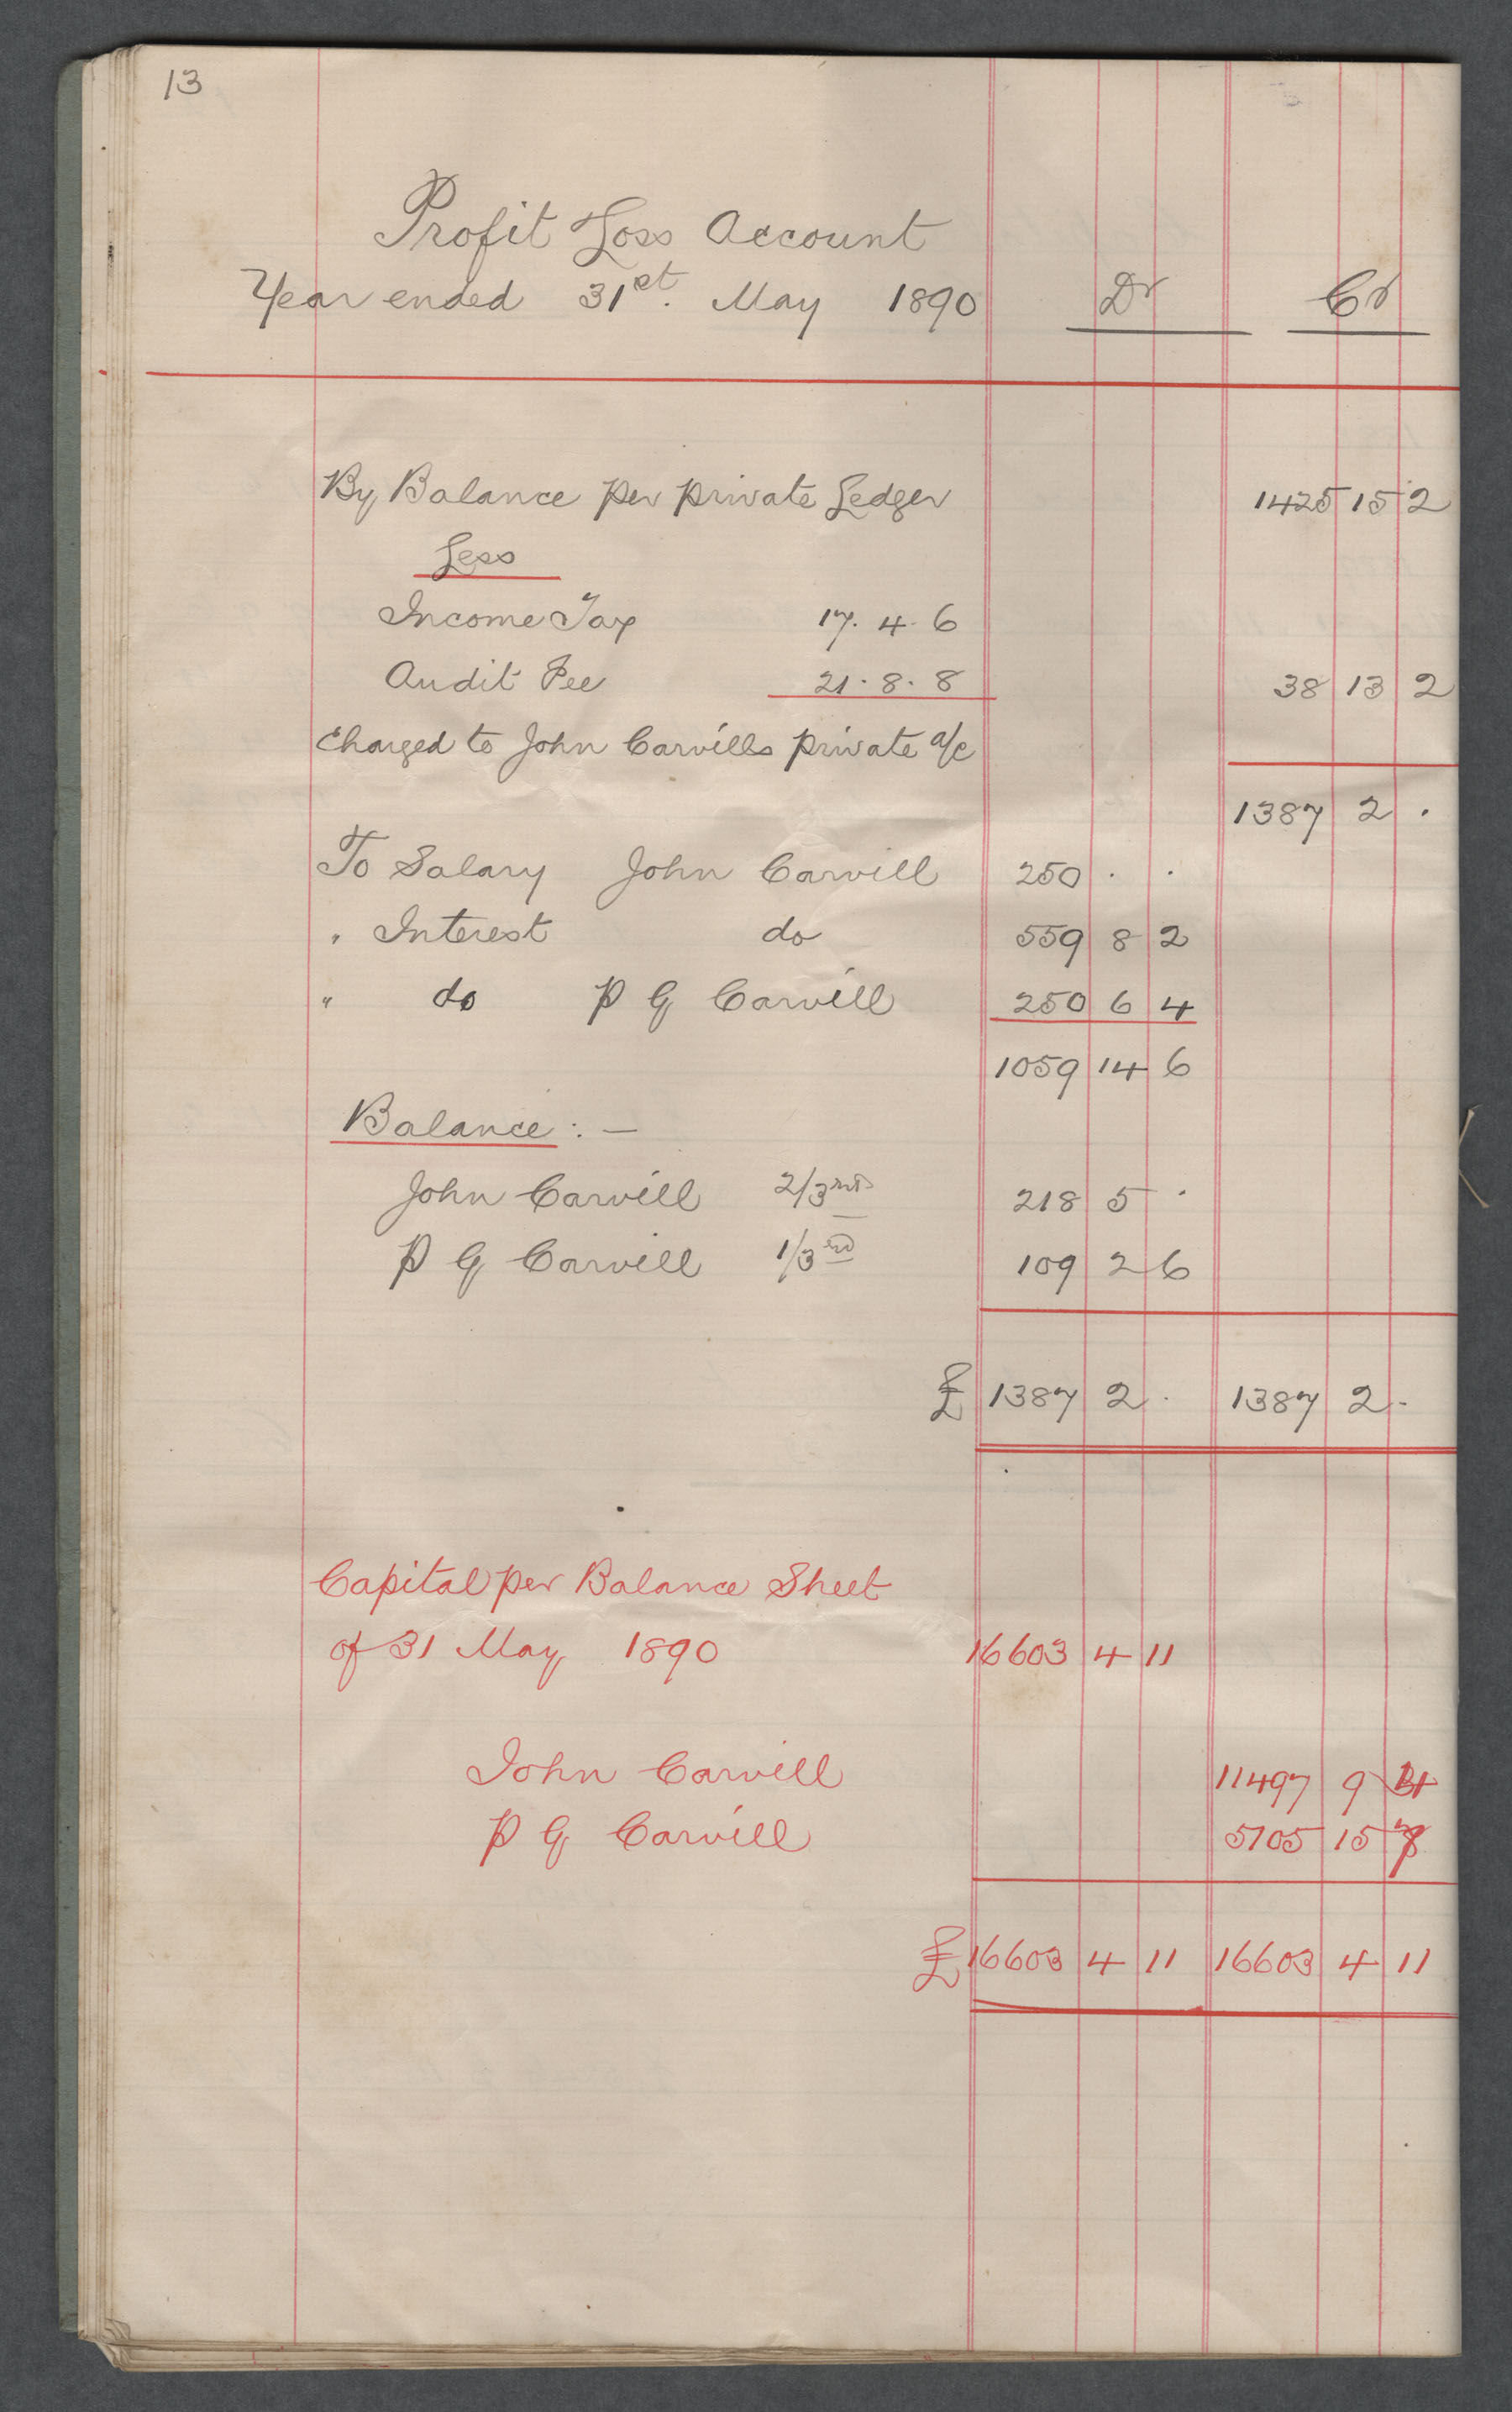 13
Profit Loss Account
Year ended 31st. May 1890 Dr Cr
By Balance per private Ledger 1425 15 2
Less
Income Tax 17. 4. 6
Audit Fee 21. 8. 8 38 13 2
Charged to John Carvills private a/c
1387 2 .
To Salary John Carvill 250 . .
" Interest do 559 8 2
" do P G Carvill 250 6 4
1059 14 6
Balance : —
John Carvill 2/3rds 218 5 .
P G Carvill 1/3rd 109 2 6
£ 1387 2 . 1387 2 .
Capital per Balance Sheet
of 31 May 1890 16603 4 11
John Carvill 11497 9 4
P G Carvill 5105 15 7
£ 16603 4 11 16603 4 11